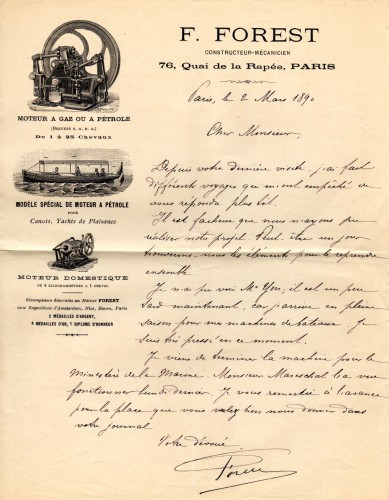 F. FOREST
CONSTRUCTEUR-MÉCANICIEN
76, Quai de la Rapée, PARIS
MOTEUR A GAZ OU A PÉTROLE
(BREVETÉ S. G. D. G.)
De 1 à 25 Chevaux
MODÈLE SPÉCIAL DE MOTEUR A PÉTROLE
POUR
Canots, Yachts de Plaisance
MOTEUR DOMESTIQUE
DE 4 KILOGRAMMÈTRES A 1 CHEVAL
Récompenses décernées au Moteur FOREST
aux Expositions d'Amsterdam, Nice, Rouen, Paris
2 MÉDAILLES D'ARGENT,
4 MÉDAILLES D'OR, 1 DIPLOME D'HONNEUR
Paris, le 2 Mars 1890
Cher Monsieur,
Depuis votre dernière visite j'ai fait
différents voyages qui m'ont empêché de
vous repondre plus tôt.
Il est facheux que nous n'ayons pu
réaliser notre projet. Peut être un jour
trouverons nous les éléments pour le reprendre
ensemble
Je n'ai pu voir Mr Yon, il est un peu
tard maintenant, car j'arrive en pleine
saison pour mes machines de bateaux. Je
suis très pressé en ce moment.
Je viens de terminer la machine pour le
Ministère de la Marine. Monsieur Mareschal l'a vue
fonctionner lundi dernier. Je vous remercie à l'avance
pour la place que vous voulez bien nous donner dans
votre journal
Votre dévoué
Forest